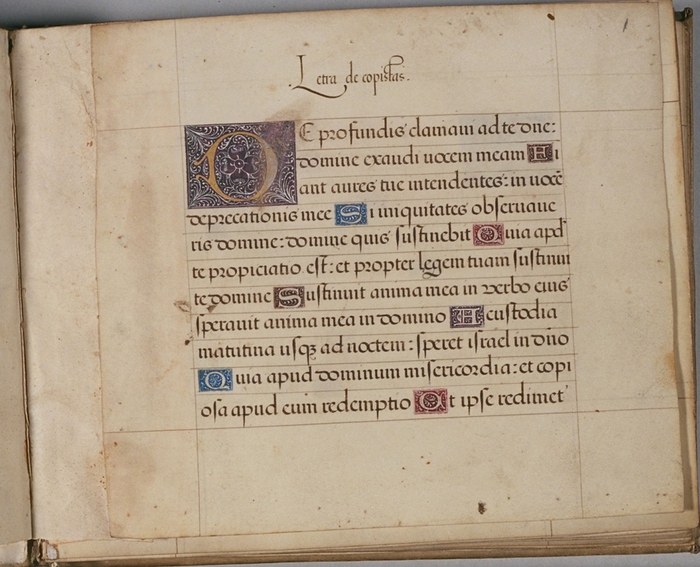 Letra de copistas.
DE profundis clamaui ad te dne:
domine exaudi uocem meam Fi
ant aures tue intendentes: in uocē
deprecationis mee Si iniquitates obseruaue
ris domine: domine quis sustinebit Quia apd
te propiciatio est: et propter legem tuam sustinui
te domine Sustinuit anima mea in verbo eius
sperauit anima mea in domino A custodia
matutina usqȝ ad noctem: speret israel in dño
Quia apud dominum misericordia: et copi
osa apud eum redemptio Et ipse redimet